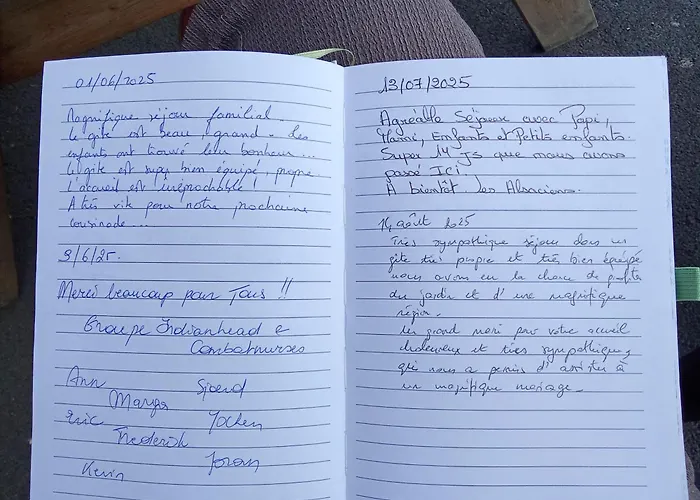 01/06/2025
Magnifique séjour familial.
Le gîte est beau, grand. Les
enfants ont trouvé leur bonheur...
Le gîte est super bien équipé, propre
L'accueil est irréprochable!
A très vite pour notre prochaine
cousinade...
9/6/25.
Merci beaucoup pour Tous !!
Groupe Indianhead e
Combatnurses
Ann Sjoerd
Marga
Eric Jochen
Frederik
Joran
Kevin
13/07/2025
Agréable Séjour avec Papi,
Mamie, Enfants et Petits enfants.
Super 14 Js que nous avons
passé Ici.
À bientôt. Les Alsaciens.
14 août 2025
Très sympathique séjour dans un
gîte très propre et très bien équipé
nous avons eu la chance de profiter
du jardin et d'une magnifique
région.
Un grand merci pour votre accueil
chaleureux et très sympathique,
qui nous a permis d'assister à
un magnifique mariage.